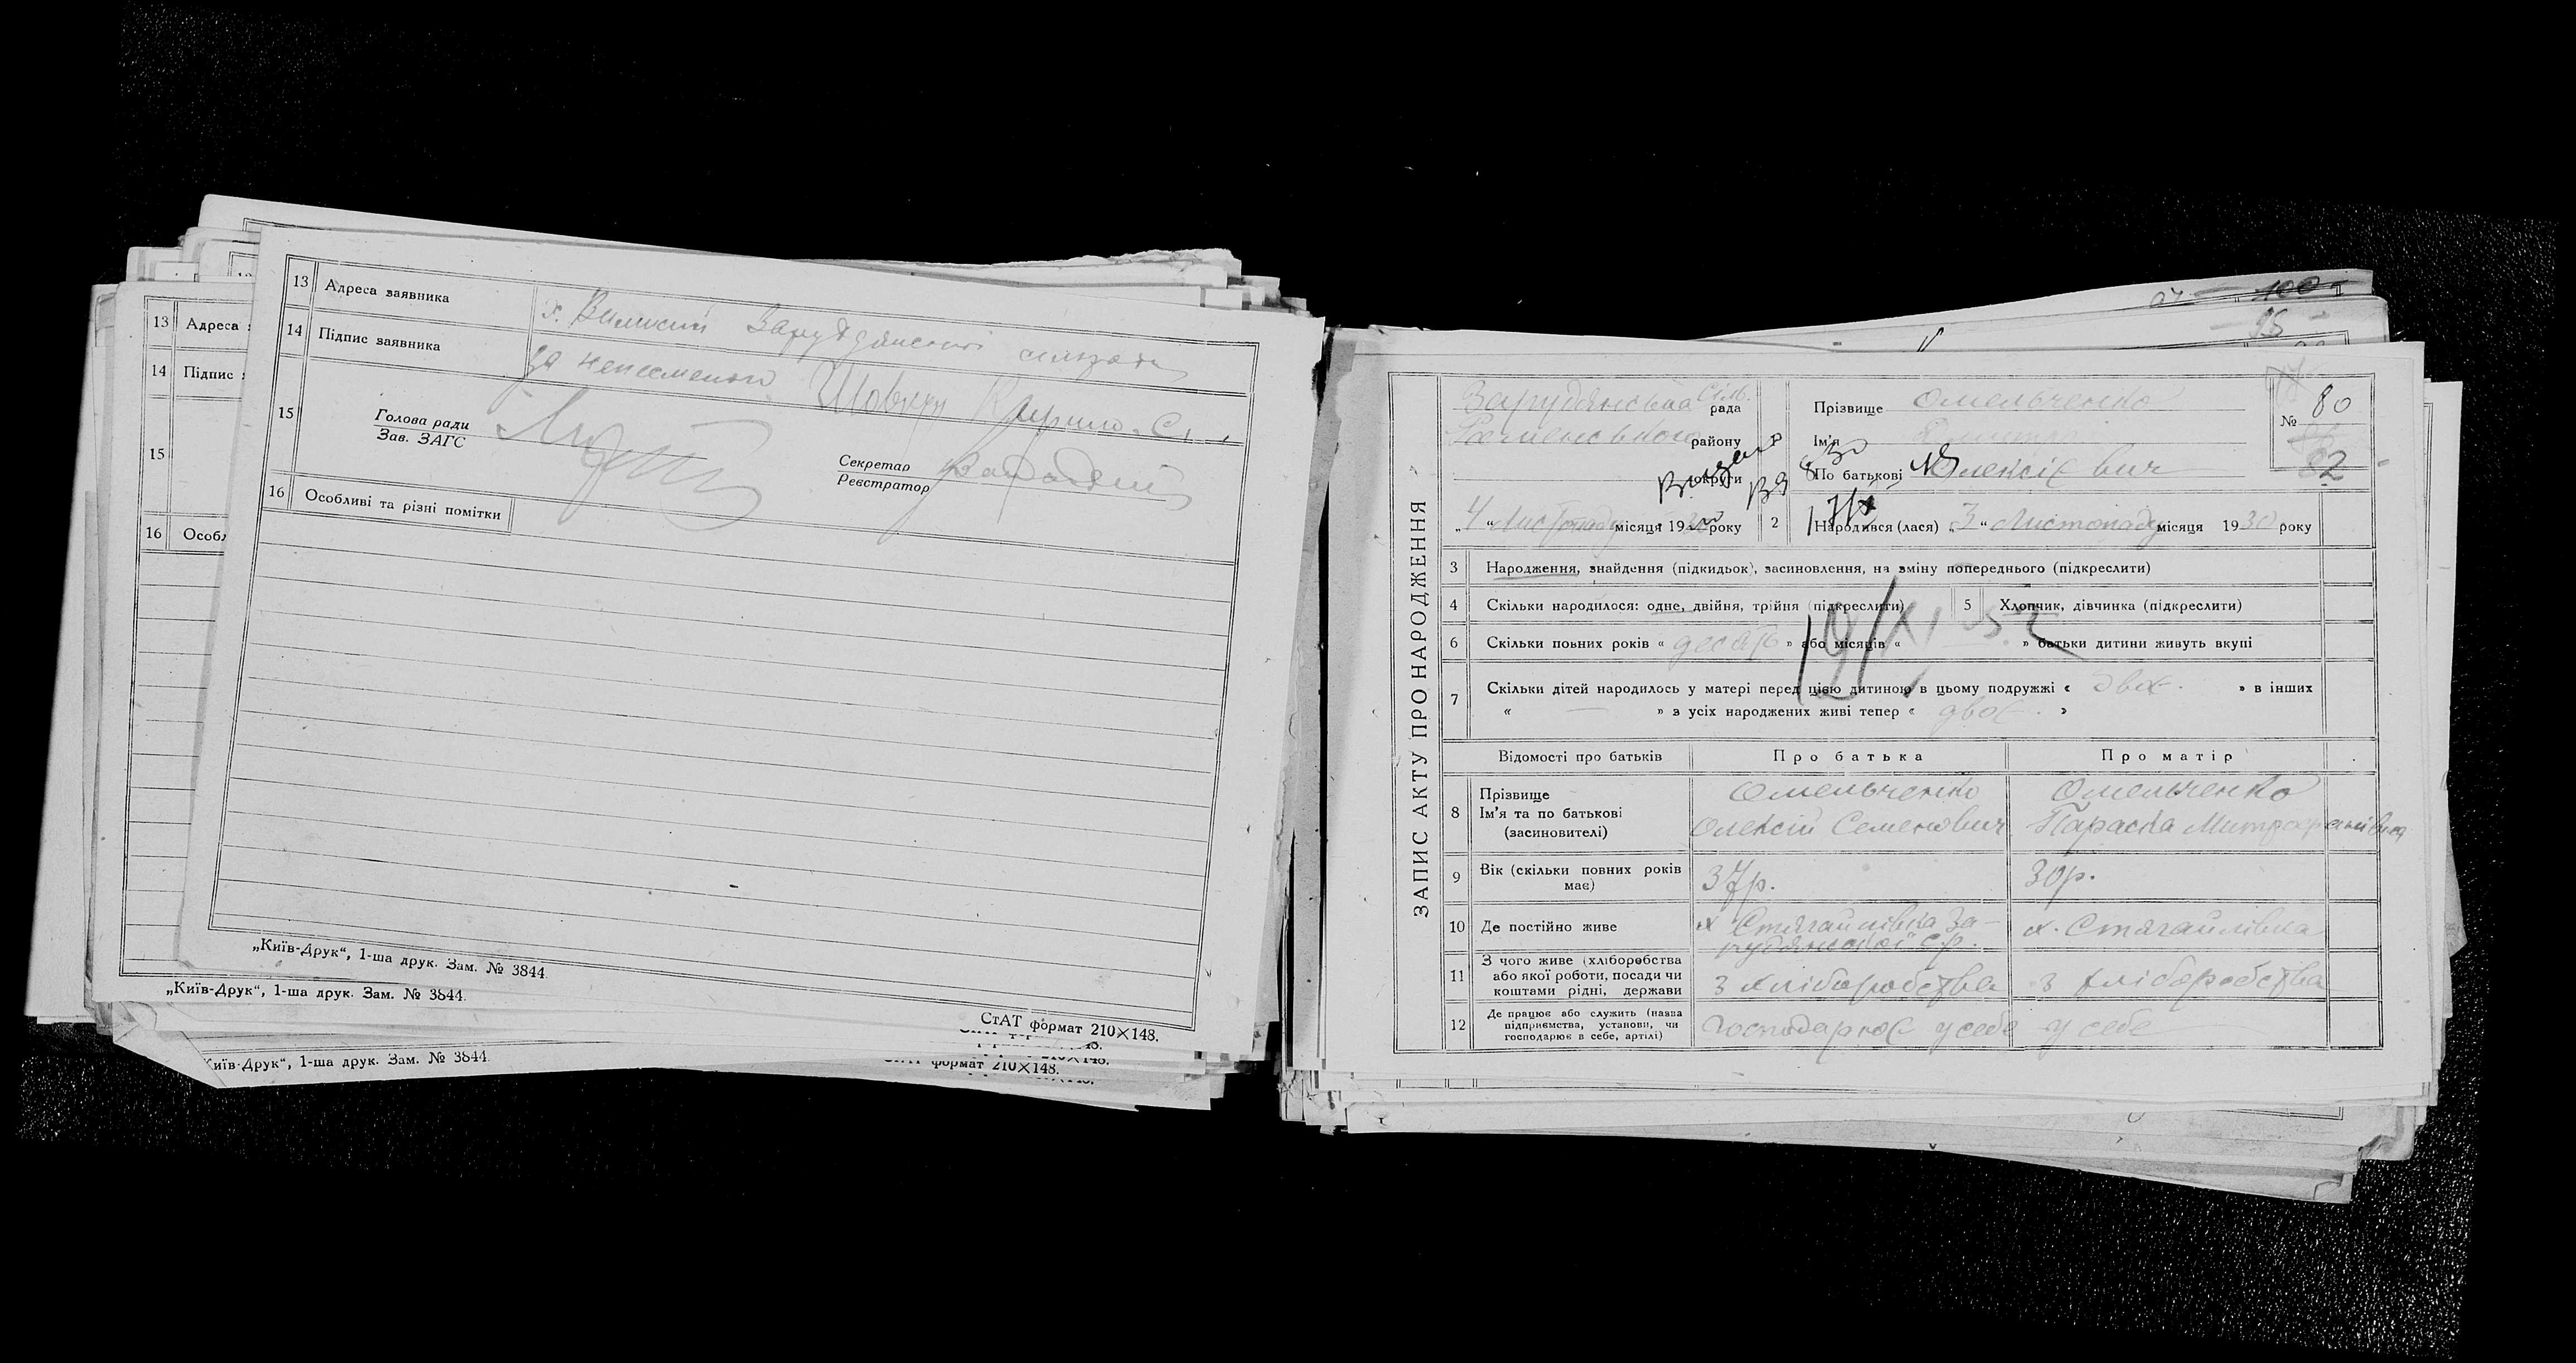 13 Адреса заявника х. Зарудянської сільради
14 Підпис заявника за неписьменого Шовкун С.
15 Голова ради
Зав. ЗАГС
Секретар
Реєстратор
16 Особливі та різні помітки
„Київ-Друк“, 1-ша друк. Зам. № 3844
СтАТ формат 210×148.
13 Адреса
14 Підпис
15
16 Особл
„Київ-Друк“, 1-ша друк. Зам. № 3844.
Київ-Друк“, 1-ша друк. Зам. № 3844
формат 210×148.
100
95
ЗАПИС АКТУ ПРО НАРОДЖЕННЯ
Зарудянська Сіль. рада
Роменського району
округи
„4“ Листопаду місяця 1930 року
1 Прізвище Омельченко
Ім'я Дмитро
По батькові Олексієвич
№ 80
82
2 Народився (лася) „3“ Листопаду місяця 1930 року
3 Народження, знайдення (підкидьок), засиновлення, на зміну попереднього (підкреслити)
4 Скільки народилося: одне, двійня, трійня (підкреслити) 5 Хлопчик, дівчинка (підкреслити)
6 Скільки повних років « десять » або місяців « — » батьки дитини живуть вкупі
19/XI 52
7 Скільки дітей народилось у матері перед цією дитиною в цьому подружжі « двоє » в інших
« — » з усіх народжених живі тепер « двоє »
Відомості про батьків Про батька Про матір
8 Прізвище Омельченко Омельченко
Ім'я та по батькові Олексій Семенович Параска Митрофанівна
(засиновителі)
9 Вік (скільки повних років має) 37р. 30р.
10 Де постійно живе х Стягайлівка Зарудянської с.р. х. Стягайлівка
11 З чого живе (хліборобства або якої роботи, посади чи коштами рідні, держави з хліборобства з хліборобства
12 Де працює або служить (назва підприємства, установи, чи господарює в себе, артілі) Господарює у себе у себе